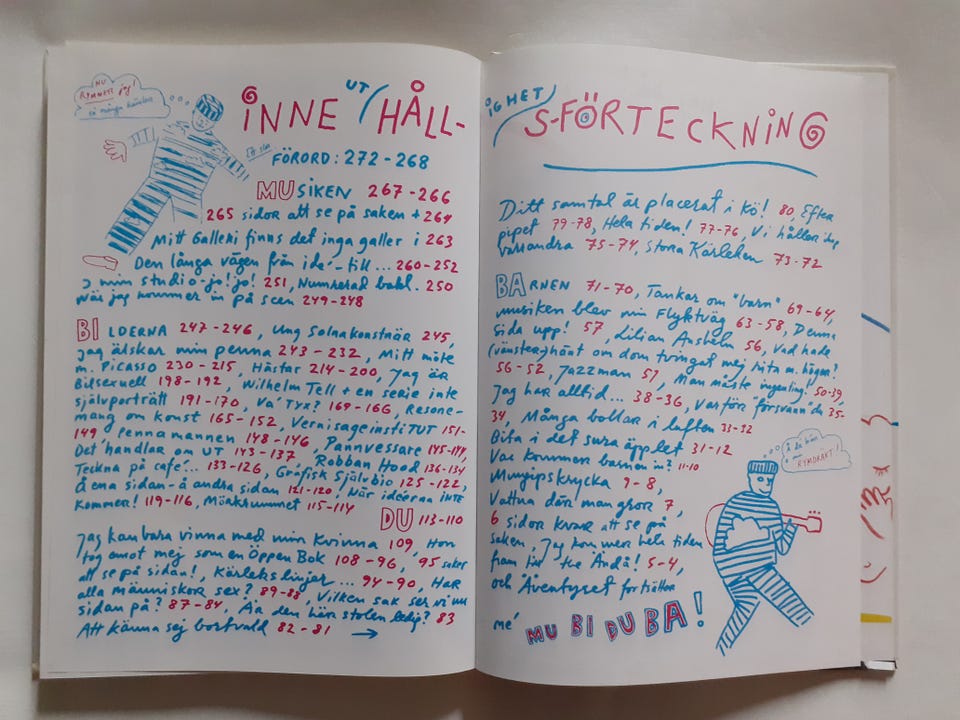 NU
RYMMER jag!
så många känslor
INNE UT HÅLL-
FÖRORD: 272-268
MUSIKEN 267-266
265 sidor att se på saken + 264
Mitt Galleri finns det inga galler i 263
Den långa vägen från idé-till ... 260-252
I min studio-jo!jo! 251, Numrerad bakl. 250
När jag kommer in på scen 249-248
BILDERNA 247-246, Ung Solnakonstnär 245,
jag älskar min penna 243-232, Mitt möte
m. Picasso 230-215, Hästar 214-200, Jag är
Bilsexuell 198-192, Wilhelm Tell + en serie inte
självporträtt 191-170, Va' Tyx? 169-166, Resone-
mang om konst 165-152, VernisageinstiTUT 151-
149, Pennamannen 148-146, Pannvessare 145-144,
Det handlar om UT 143-137, Robban Hood 136-134
Teckna på café... 133-126, Grafisk Självbio 125-122,
Å ena sidan-å andra sidan 121-120, När idéerna INTE
kommer! 119-116, Mörkrummet 115-114
DU 113-110
Jag kan bara vinna med min Kvinna 109, Hon
tog emot mej som en Öppen Bok 108-96, 95 saker
att se på sidan!, Kärlekslinjer ... 94-90, Har
alla människor sex? 89-88, Vilken sak ser vi nu
sidan på? 87-84, Är den här stolen ledig? 83
Att känna sej bortvald 82-81 →
IGHET S-FÖRTECKNING
Ditt samtal är placerat i kö! 80, Efter
pipet 79-78, Hela tiden! 77-76, Vi håller
varandra 75-74, Stora Kärleken 73-72
BARNEN 71-70, Tankar om "barn" 69-64,
musiken blev min Flyktväg 63-58, Denna
sida upp! 57, Lilian 56, Vad hade
(vänster)hänt om dom tvingat mej rita m. höger?
56-52, Jazzman 51, Man måste ingenting! 50-39,
Jag har alltid ... 38-36, Varför "försvann" du 35-
34, Många bollar i luften 33-32
Bita i det sura äpplet 31-12
Var kommer barnen in? 11-10
Mungipskrycka 9-8,
Vattna där man gror 7,
6 sidor kvar att se på
saken, Jag kommer hela tiden
fram till the Ändå! 5-4,
och Äventyret fortsätter
me' MU BI DU BA!
RYMDRÄKT!